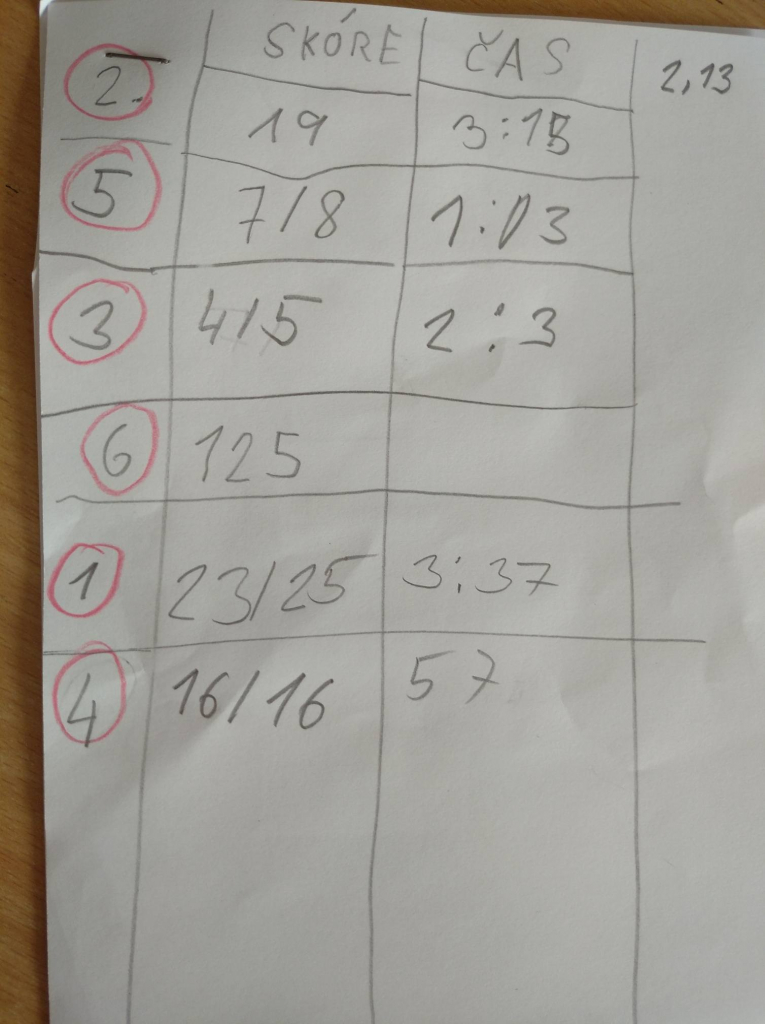 SKÓRE ČAS 2,13
2. 19
5 7/8
3 4/5 2:3
6 125
1 23/25 3:37
4 16/16 57